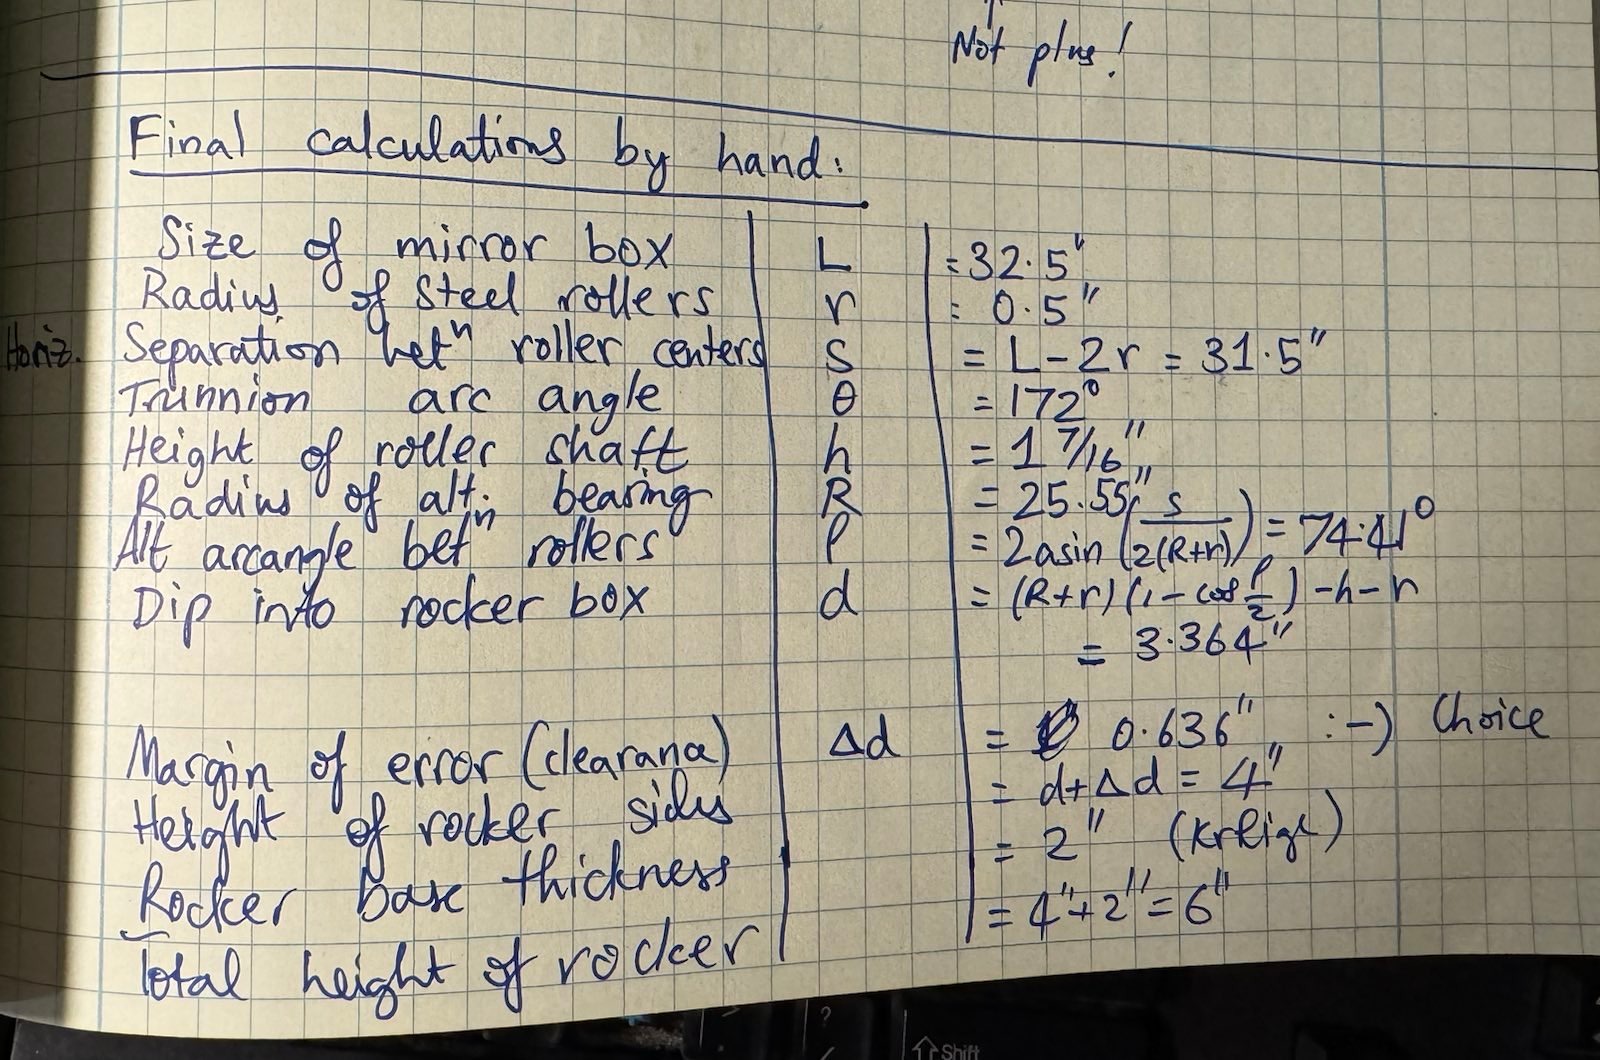 Not plus!
Final calculations by hand:
Size of mirror box L = 32.5"
Radius of steel rollers r = 0.5"
Horiz. Separation betⁿ roller centers S = L - 2r = 31.5"
Trunnion arc angle θ = 172°
Height of roller shaft h = 1 7/16"
Radius of alt. bearing R = 25.55"
Alt arcangle betⁿ rollers ρ = 2asin (S/2(R+r)) = 74.41°
Dip into rocker box d = (R+r) (1 - cos ρ/2) - h - r
= 3.364"
Margin of error (clearance) Δd = 0.636" :-) Choice
Height of rocker sides = d + Δd = 4"
Rocker base thickness = 2"
Total height of rocker = 4" + 2" = 6"
?
Shift